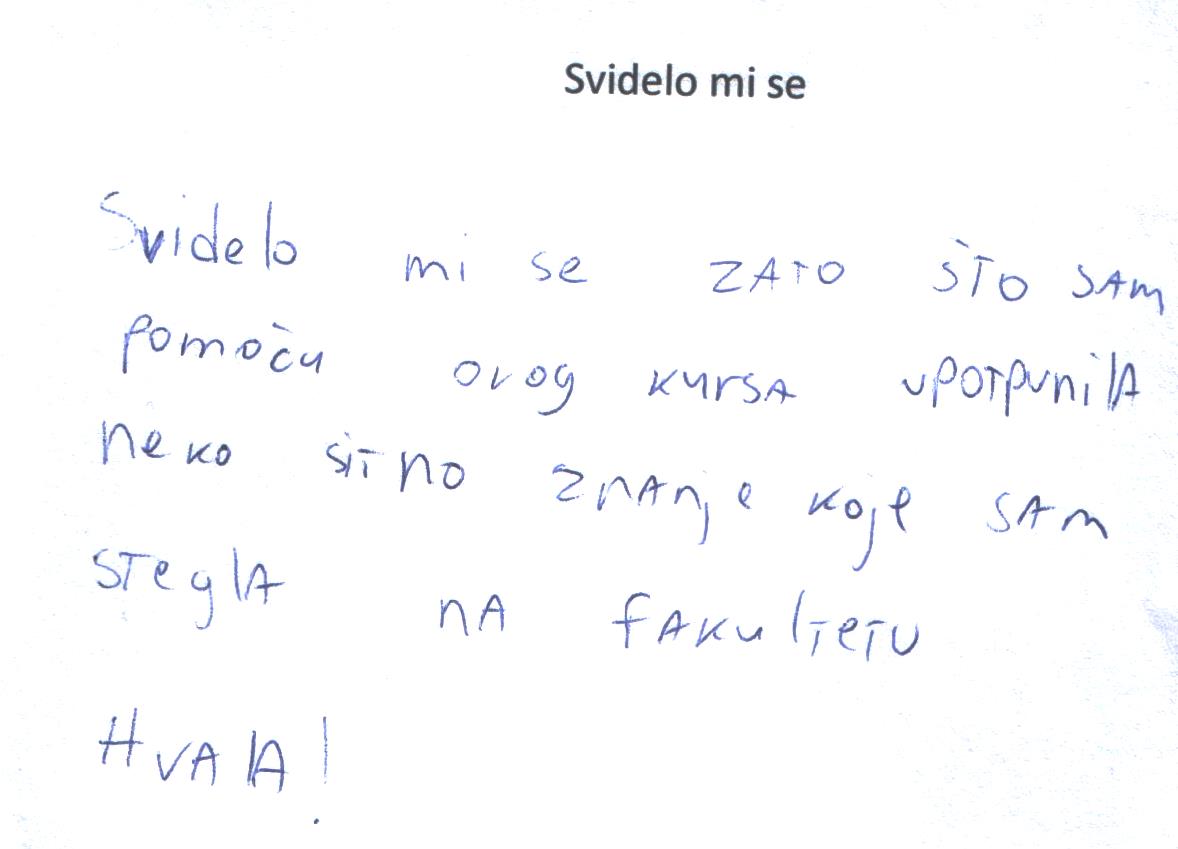 Svidelo mi se
Svidelo mi se zato što sam
pomoću ovog kursa upotpunila
neko sitno znanje koje sam
stegla na fakultetu
Hvala!